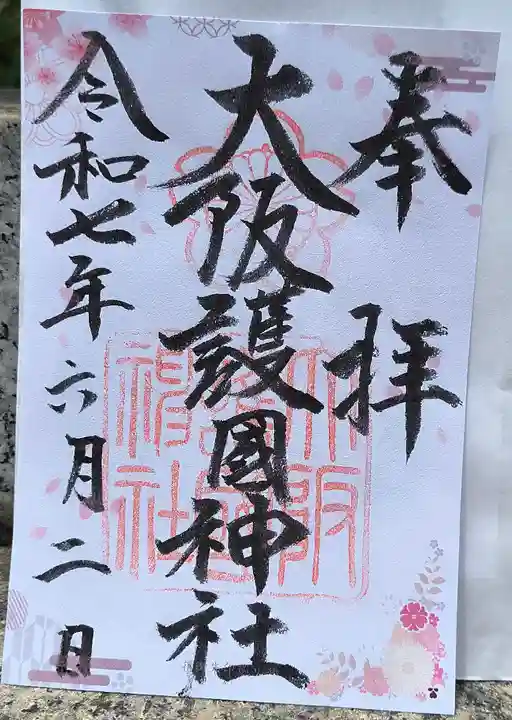 奉拝
大阪護國神社
令和七年六月二日
大阪護國神社